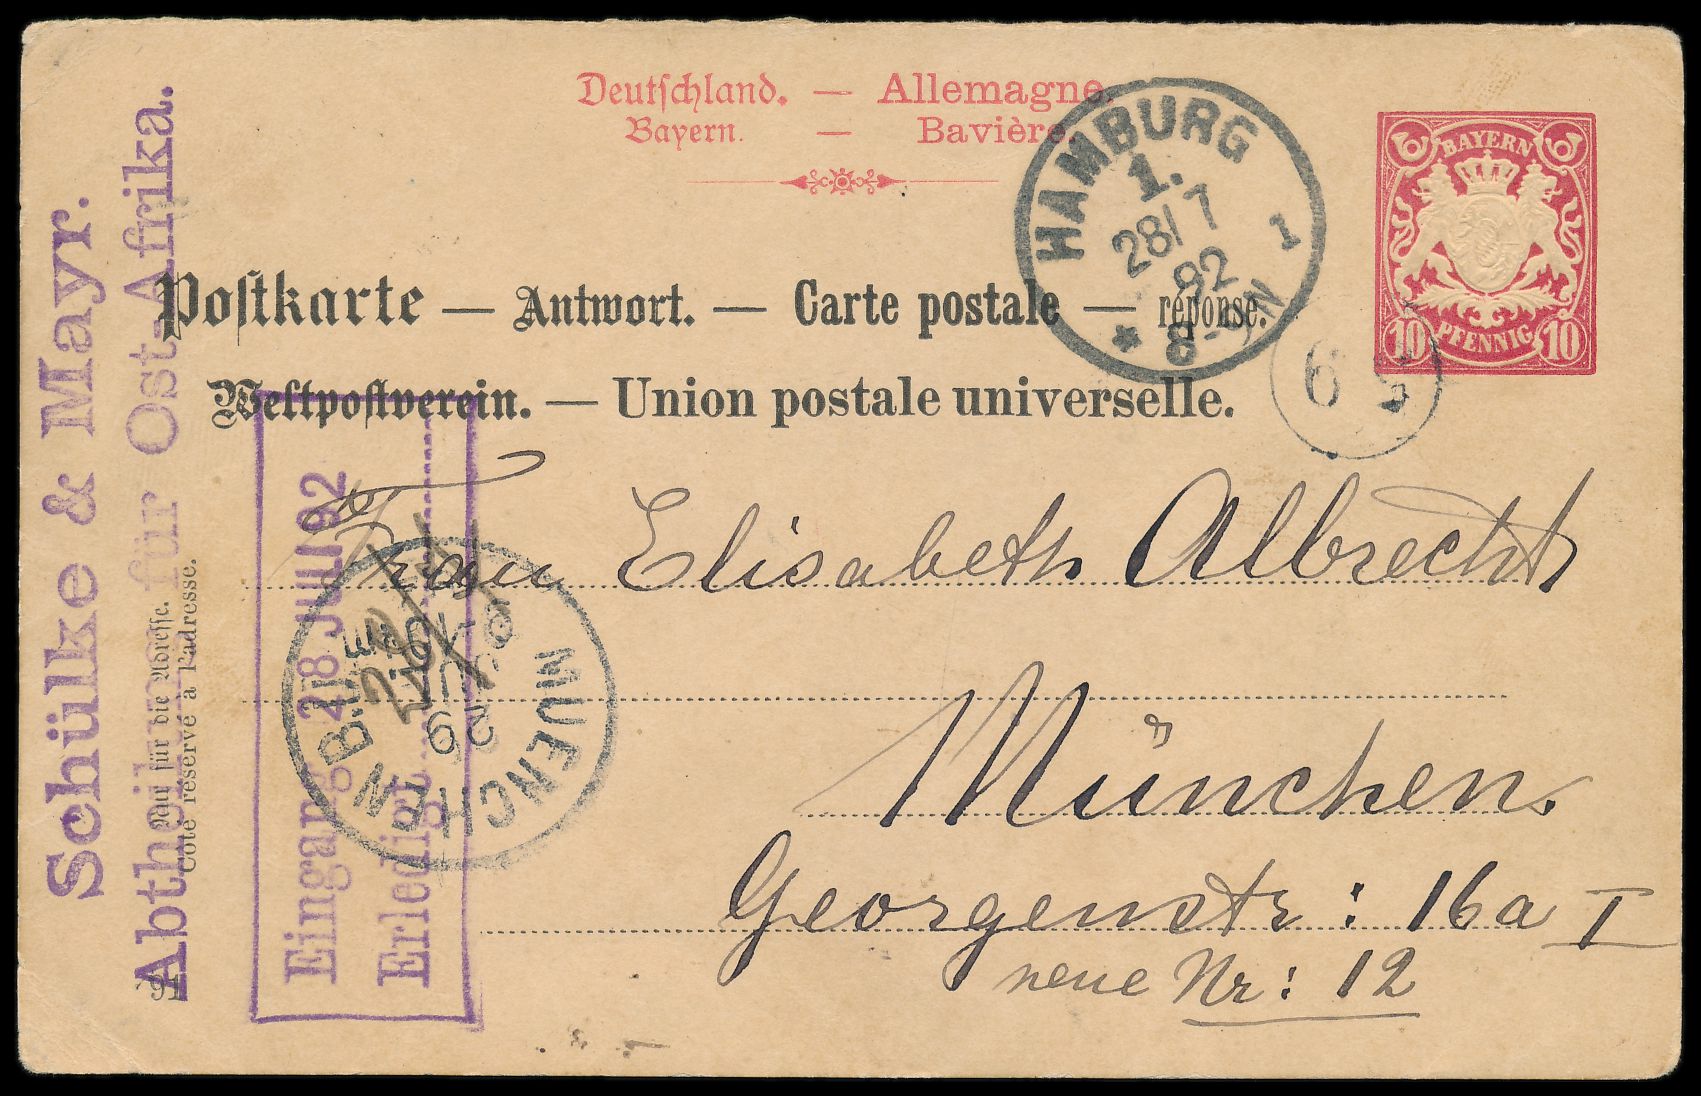 Deutschland. — Allemagne.
Bayern. — Bavière.
BAYERN
10 PFENNIG 10
HAMBURG
1.
28/7
92
* 8-9N 1
Postkarte — Antwort. — Carte postale — réponse.
Weltpostverein. — Union postale universelle.
Schülke & Mayr.
Abtheilung für Ost-Afrika.
Nur für die Adresse.
Côté réservé à l'adresse.
91
Eingang 28 JULI 92
Erledigt
28/7
MUENCHEN B.
92
Frau Elisabeth Albrecht
München.
Georgenstr: 16a I
neue Nr: 12